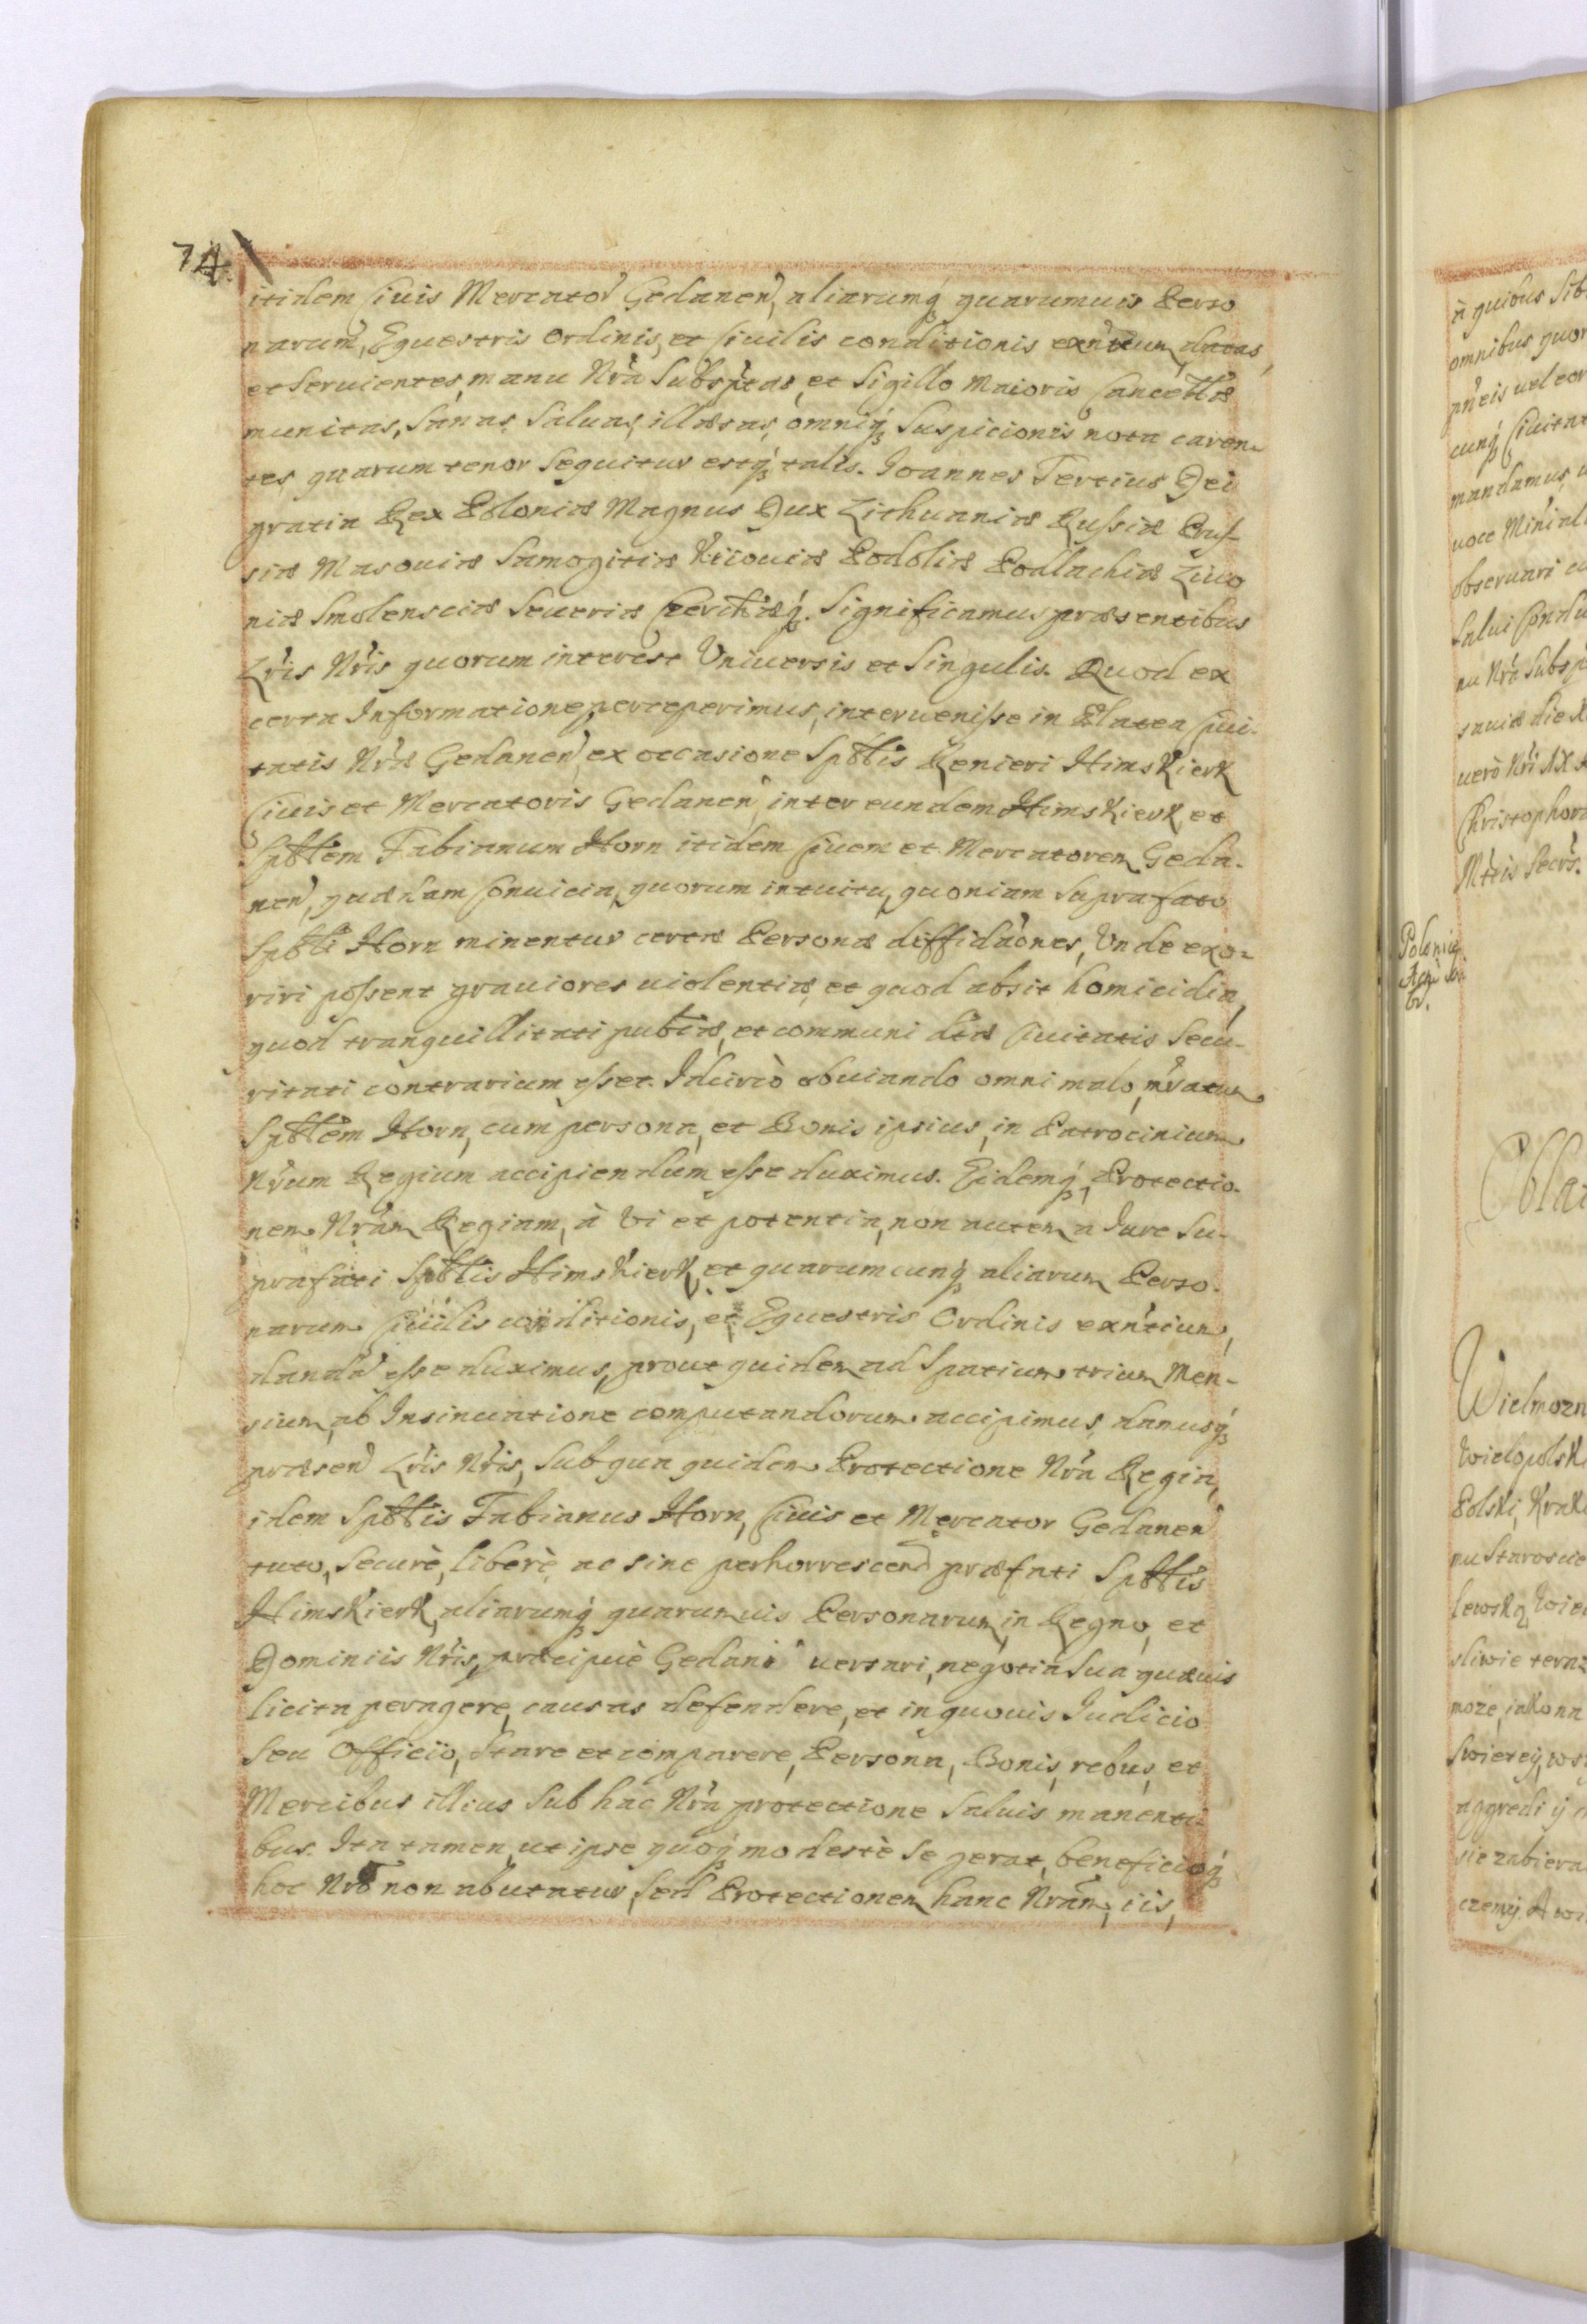 74
itidem Ciuis Mercator Gedanen̄, aliarumq́ quarumuis Perso
narum, Equestris Ordinis, et Ciuilis conditionis exn̄tium, datas,
et seruientes, manu Nr̄a Subsp̄tas, et Sigillo Maioris Cancell̄æ
munitas, Sanas Saluas, illæsas, omniq́ Suspicionis nota caren
tes quarum tenor Sequitur estq́ talis. Joannes Tertius Dei
gratia Rex Poloniæ Magnus Dux Lithuaniæ Russiæ Prus-
siæ Masouiæ Samogitiæ Kiiouiæ Podoliæ Podlachiæ Liuo
niæ Smolensciæ Seueriæ Czerch̄æq́. Significamus præsentibus
Lr̄is Nr̄is quorum interest Vniuersis et Singulis. Quod ex
certa Informatione perceperimus, interuenisse in Platea Ciui-
tatis Nr̄æ Gedanen̄, ex occasione Sp̄blis Renieri Himskierk
Ciuis et Mercatoris Gedanen̄, inter eundem Himskierk, et
Sp̄blem Fabianum Horn itidem Ciuem et Mercatorem Geda-
nen̄, quædam Conuicia, quorum intuitu, quoniam Suprafato
Sp̄bli Horn minentur certæ Personæ diffidāones, Unde exo-
riri possent grauiores uiolentiæ, et quod absit homicidia,
quod tranquillitati publ̄æ, et communi dt̄æ Ciuitatis Secu-
ritati contrarium esset. Idcirco obuiando omni malo, mr̄atum
Sp̄blem Horn, cum persona, et Bonis ipsius, in Patrocinium
Nr̄um Regium accipiendum esse duximus. Eidemq́, Protectio-
nem Nr̄am Regiam, à Vi et potentia, non autem a Jure Su-
prafati Sp̄blis Himskierk, et quarumcunq́ aliarum Perso-
narum Ciuilis conditionis, et Equestris Ordinis exn̄tium,
dandā esse duximus, prout quidem ad Spatium trium Men-
sium, ab Insinuatione computandorum accipimus, damusq́
præsen̄ Lr̄is Nr̄is, Sub qua quidem Protectione Nr̄a Regia,
idem Sp̄blis Fabianus Horn, Ciuis et Mercator Gedanen̄
tuto, Securè, liberè, ac sine perhorrescen̄ præfati Sp̄blis
Himskierk, aliarumq́ quarumuis Personarum, in Regno, et
Dominiis Nr̄is, præcipuè Gedani uersari, negotia Sua quæuis
licita peragere, causas defendere, et in quouis Iudicio
Seu Officio, Stare et comparere, Persona, Bonis, rebus, et
Mercibus illius Sub hac Nr̄a protectione Saluis manenti
bus. Ita tamen, ut ipse quoq́ modestè Se gerat, beneficioq́
hoc Nr̄o non abutatur, Sed Protectionem hanc Nr̄am, iis,
à quibus Sib
omnibus quor
pn̄eis uel eor
cunq́ Ciuitat
mandamus, u
uoce Min̄ial
obseruari cu
Salui Condu
nu Nr̄a Subsp
sauiæ die X
uerò Nr̄i XX
Christophor
Mt̄tis Secrs.
Wielmozn
Wielopolski
Polski, Krak
nu Staroscie
lewską Wie
sliwie teraz
moze, jako na
Swietey, ws
aggredi ij
sie zabiera
czemij. A wi